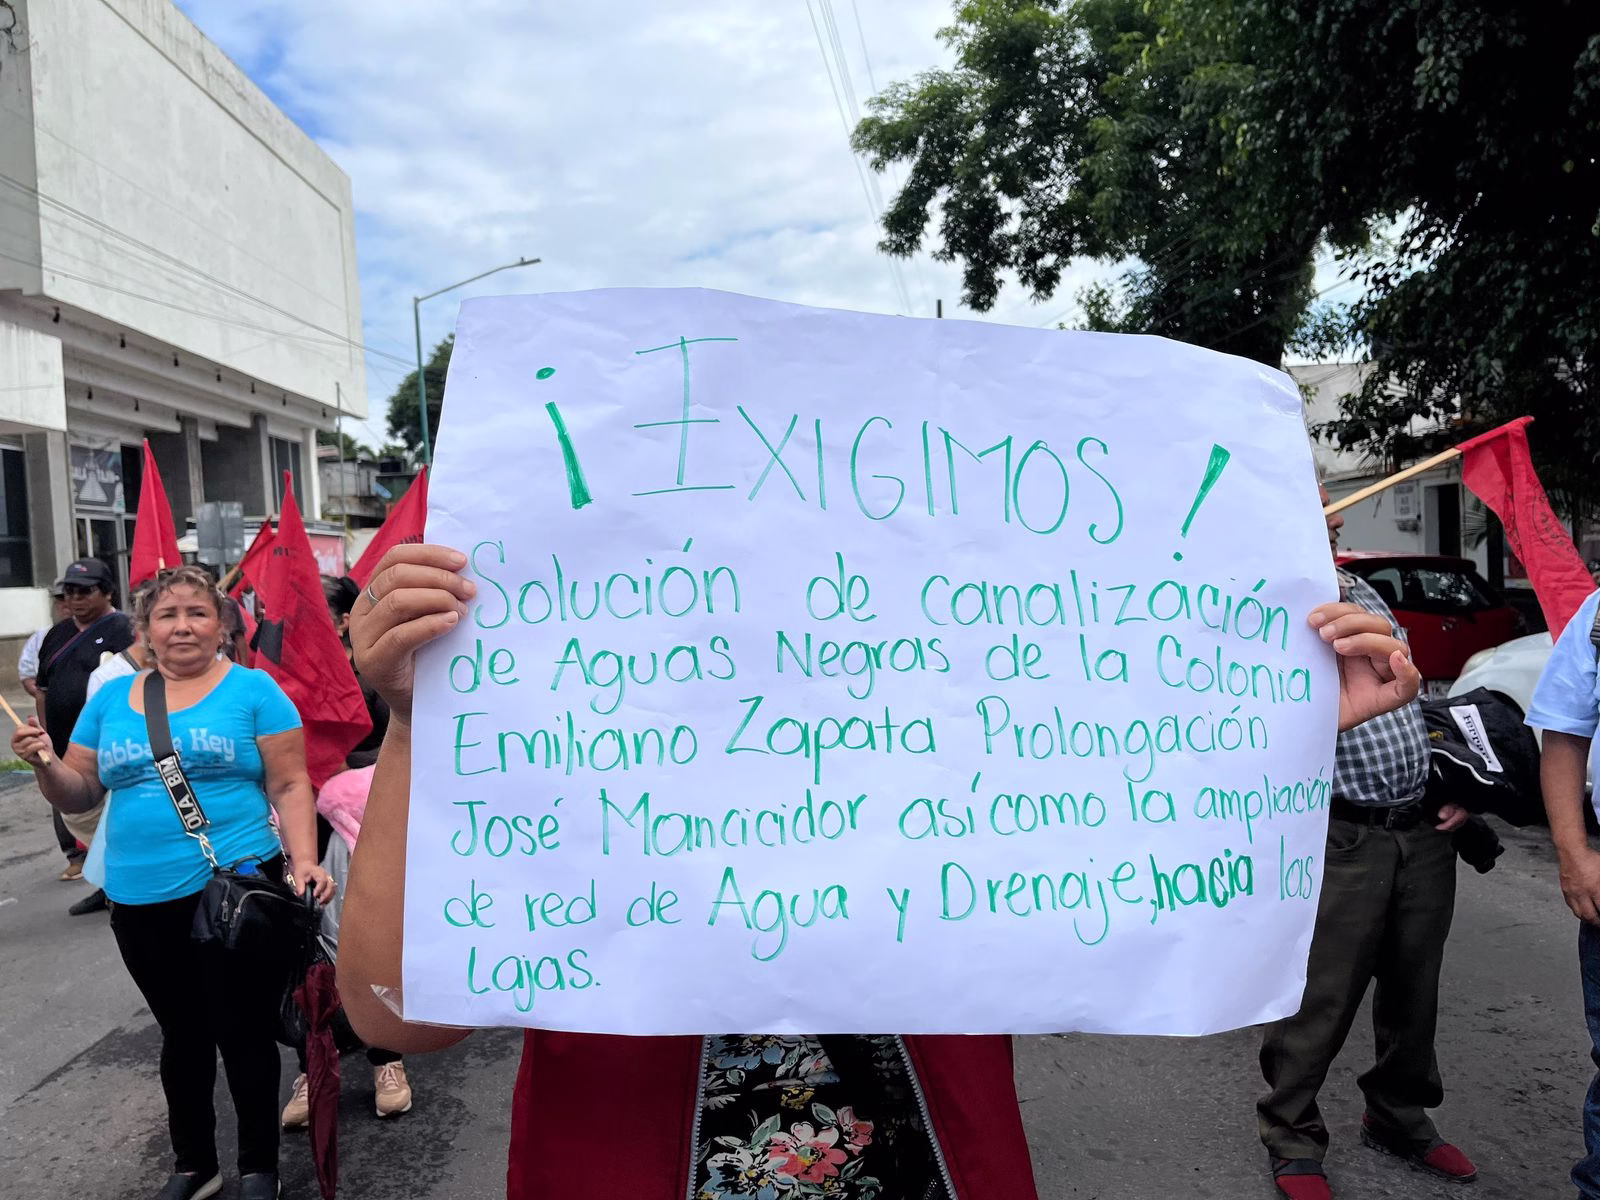 ¡EXIGIMOS!
Solución de canalización
de Aguas Negras de la Colonia
Emiliano Zapata Prolongación
José Mancicidor así como la ampliación
de red de Agua y Drenaje, hacia las
Lajas.
Cabbage Key
OLA BIM
Ferrari